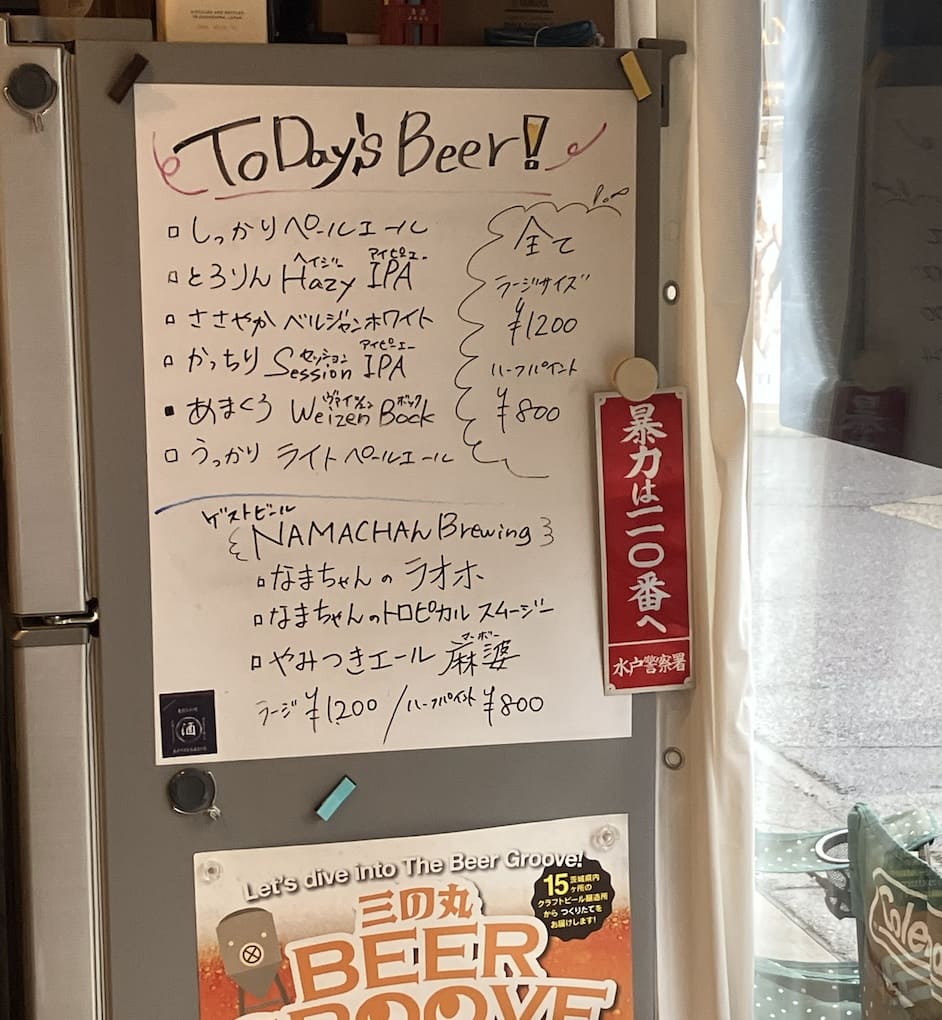 ToDay's Beer!
しっかりペールエール
とろりん Hazy IPA
ヘイジー アイピーエー
ささやか ベルジャンホワイト
かっちり Session IPA
セッション アイピーエー
あまくろ Weizen Bock
ヴァイツェン ボック
うっかり ライトペールエール
全て
ラージサイズ
¥1200
ハーフパイント
¥800
ゲストビール
NAMACHAん Brewing
なまちゃんの ラオホ
なまちゃんのトロピカル スムージー
やみつきエール 麻婆
マーボー
ラージ ¥1200 / ハーフパイント ¥800
酒
暴力は一一〇番へ
水戸警察署
Let's dive into The Beer Groove!
15茨城県内
ヶ所の
クラフトビール醸造所
から つくりたてを
お届けします!
三の丸
BEER
GROOVE